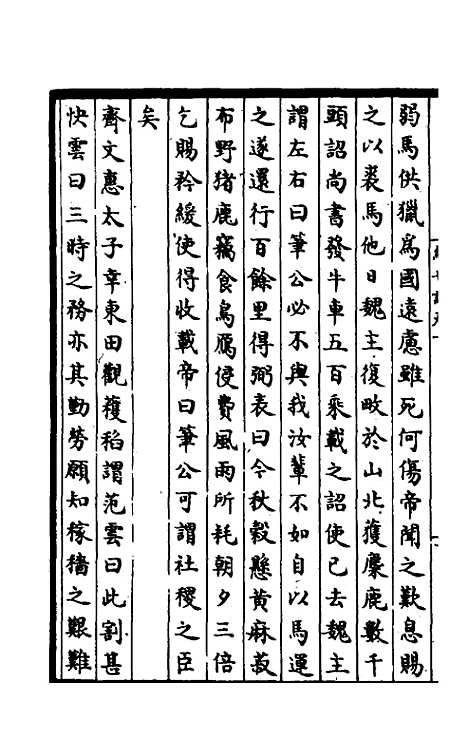 弱馬供獵爲國遠慮雖死何傷帝聞之歎息賜
之以裘馬他日魏主復畋於山北獲麋鹿數千
頭詔尚書發牛車五百乘載之詔使已去魏主
謂左右曰筆公必不與我汝輩不如自以馬運
之遂還行百餘里得弼表曰今秋穀懸黃麻菽
布野猪鹿竊食鳥鴈侵費風雨所耗朝夕三倍
乞賜矜緩使得收載帝曰筆公可謂社稷之臣
矣
齊文惠太子幸東田觀穫稻謂范雲曰此割甚
快雲曰三時之務亦其勤勞願知稼穡之艱難